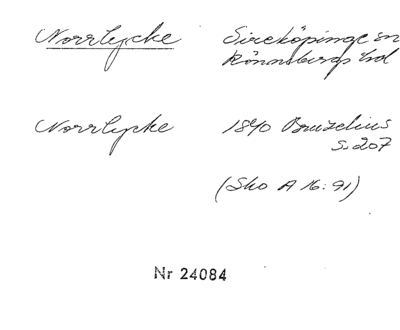 Norrlycke Sireköpinge sn
Rönnebergs hd
Norrlycke 1840 Bruzelius
S. 207
(Sko A 16:91)
Nr 24084